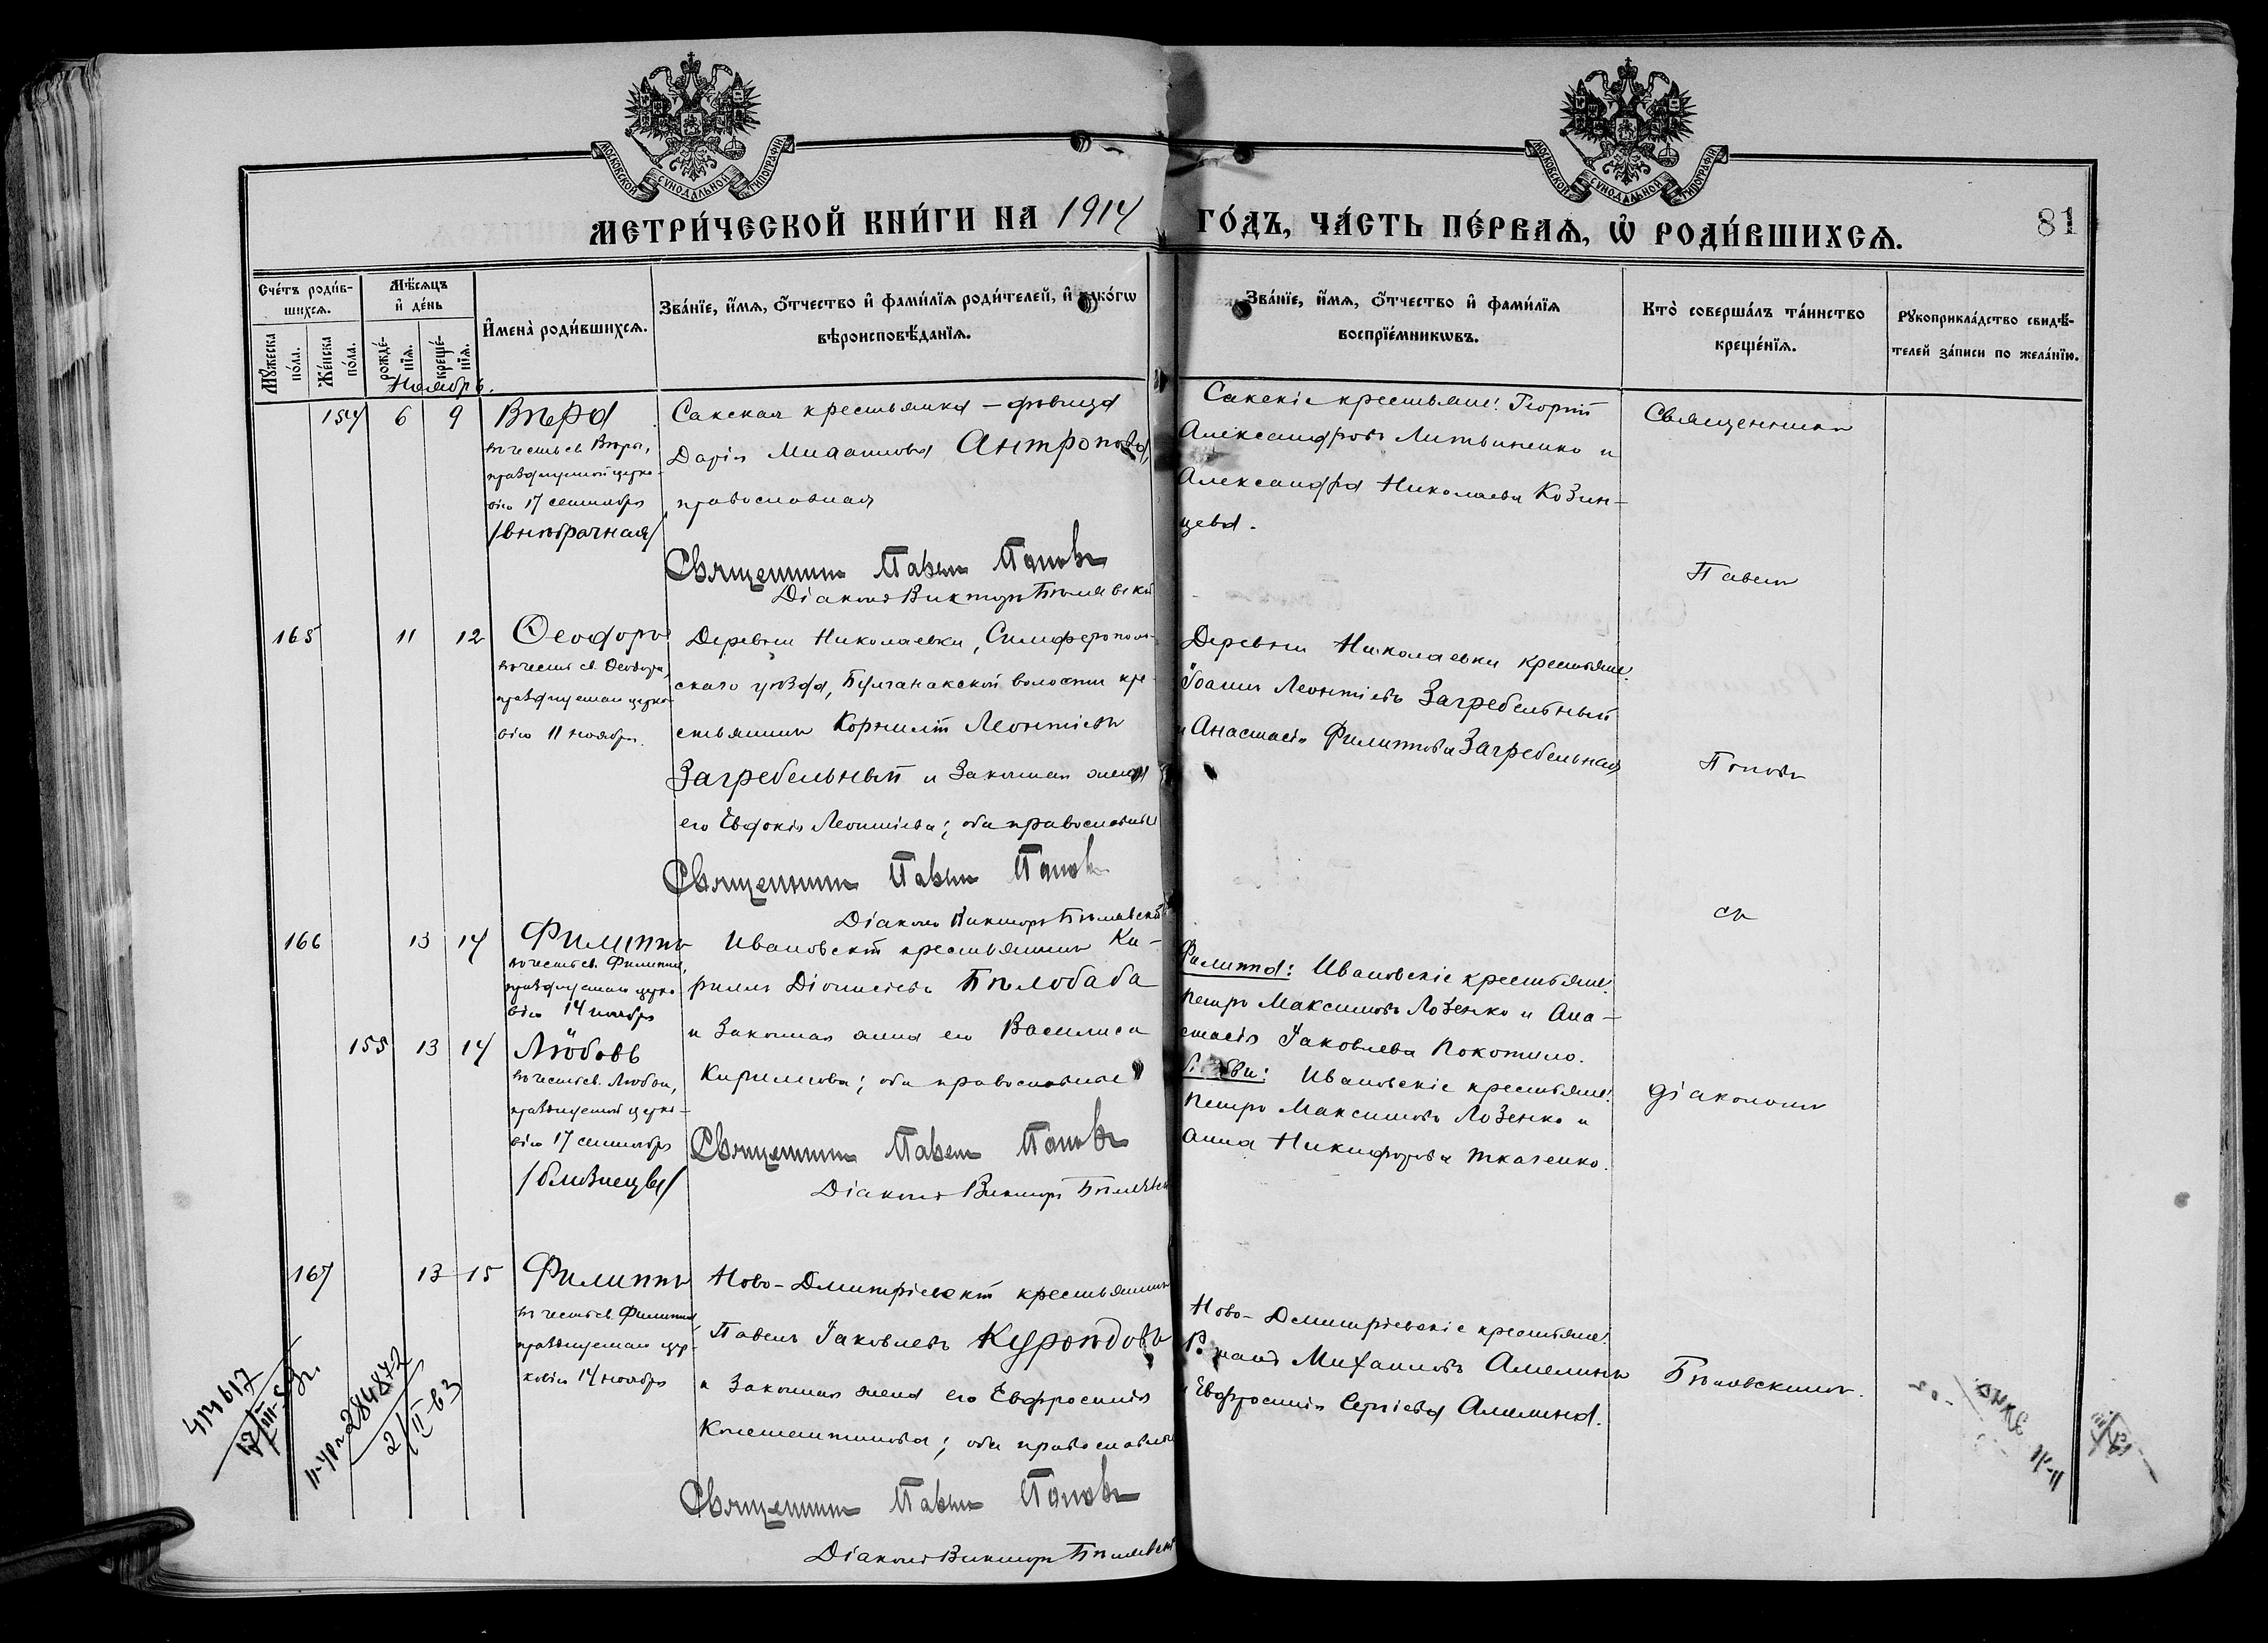 МОСКОВСКОЙ СѴНОДАЛЬНОЙ ТИПОГРАФІИ
МОСКОВСКОЙ СѴНОДАЛЬНОЙ ТИПОГРАФІИ
МЕТРИ́ЧЕСКОЙ КНИ́ГИ НА 1914 ГО́ДЪ, ЧА́СТЬ ПЕ́РВАѦ, Ѡ҆ РОДИ́ВШИХСѦ.
81
Сче́тъ роди́в-
шихсѧ.
Мꙋ́жеска по́ла.
Же́нска по́ла.
Мѣ́сѧцъ
и҆ де́нь
рожде́-
нїѧ.
креще́-
нїѧ.
И҆мена̀ роди́вшихсѧ.
Зва́нїе, и҆́мѧ, ѻ҆́тчество и҆ фамилїѧ роди́телей, и҆ како́гѡ
вѣроисповѣ́данїѧ.
Зва́нїе, и҆́мѧ, ѻ҆́тчество и҆ фами́лїѧ
воспрїе́мникѡвъ.
Кто̀ соверша́лъ та́инство
креще́нїѧ.
Рꙋкоприкла́дство свидѣ́-
телей за́писи по жела́нїю.
Ноябрь.
154 6 9
Вѣра
въ честь св. Вѣры,
празднуемой церко-
вію 17 сентября
/внѣбрачная/
Сакская крестьянка – дѣвица
Дарія Михаилова Антропова,
православная
Священникъ Павелъ Поповъ
Діаконъ Викторъ Бѣлявскій
Сакскіе крестьяне: Георгій
Александровъ Литвиненко и
Александра Николаева Козин-
цева.
Священникъ
Павелъ
165 11 12
Ѳеодоръ
въ честь св. Ѳеодора,
празднуемаго церко-
вію 11 ноября.
Деревни Николаевки, Симферополь-
скаго уѣзда, Булганакской волости кре-
стьянинъ Корнилій Леонтіевъ
Загребельный и законная жена
его Евдокія Леонтіева; оба православные
Священникъ Павелъ Поповъ
Діаконъ Викторъ Бѣлявскій
Деревни Николаевки крестьяне:
Іоаннъ Леонтіевъ Загребельный
и Анастасія Филиппова Загребельная
Поповъ
съ
166 13 14
Филиппъ
въ честь св. Филиппа,
празднуемаго церко-
вію 14 ноября
155 13 14
Любовь
въ честь св. Любови,
празднуемой церко-
вію 17 сентября
/близнецы/
Ивановскій крестьянинъ Ки-
риллъ Діонисіевъ Бѣлобаба
и законная жена его Василиса
Кириллова; оба православные
Священникъ Павелъ Поповъ
Діаконъ Викторъ Бѣлявскій
Филиппа: Ивановскіе крестьяне:
Петръ Максимовъ Лозенко и Ана-
стасія Іаковлева Покотило.
Любви: Ивановскіе крестьяне:
Петръ Максимовъ Лозенко и
Анна Никифорова Ткаченко.
діакономъ
167 13 15
Филиппъ
въ честь св. Филиппа,
празднуемаго цер-
ковію 14 ноября
Ново-Дмитріевскій крестьянинъ
Павелъ Іаковлевъ Куроѣдовъ
и законная жена его Евфросинія
Константинова; оба православные
Священникъ Павелъ Поповъ
Діаконъ Викторъ Бѣлявскій
Ново-Дмитріевскіе крестьяне:
Романъ Михаиловъ Амелинъ
и Евфросинія Сергіева Амелина.
Бѣлявскимъ.
284872
2/II-63